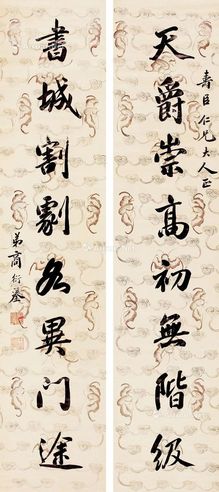 壽臣仁兄大人正
天爵崇高初無階級
書城割劇各異門途
弟商衍鎏